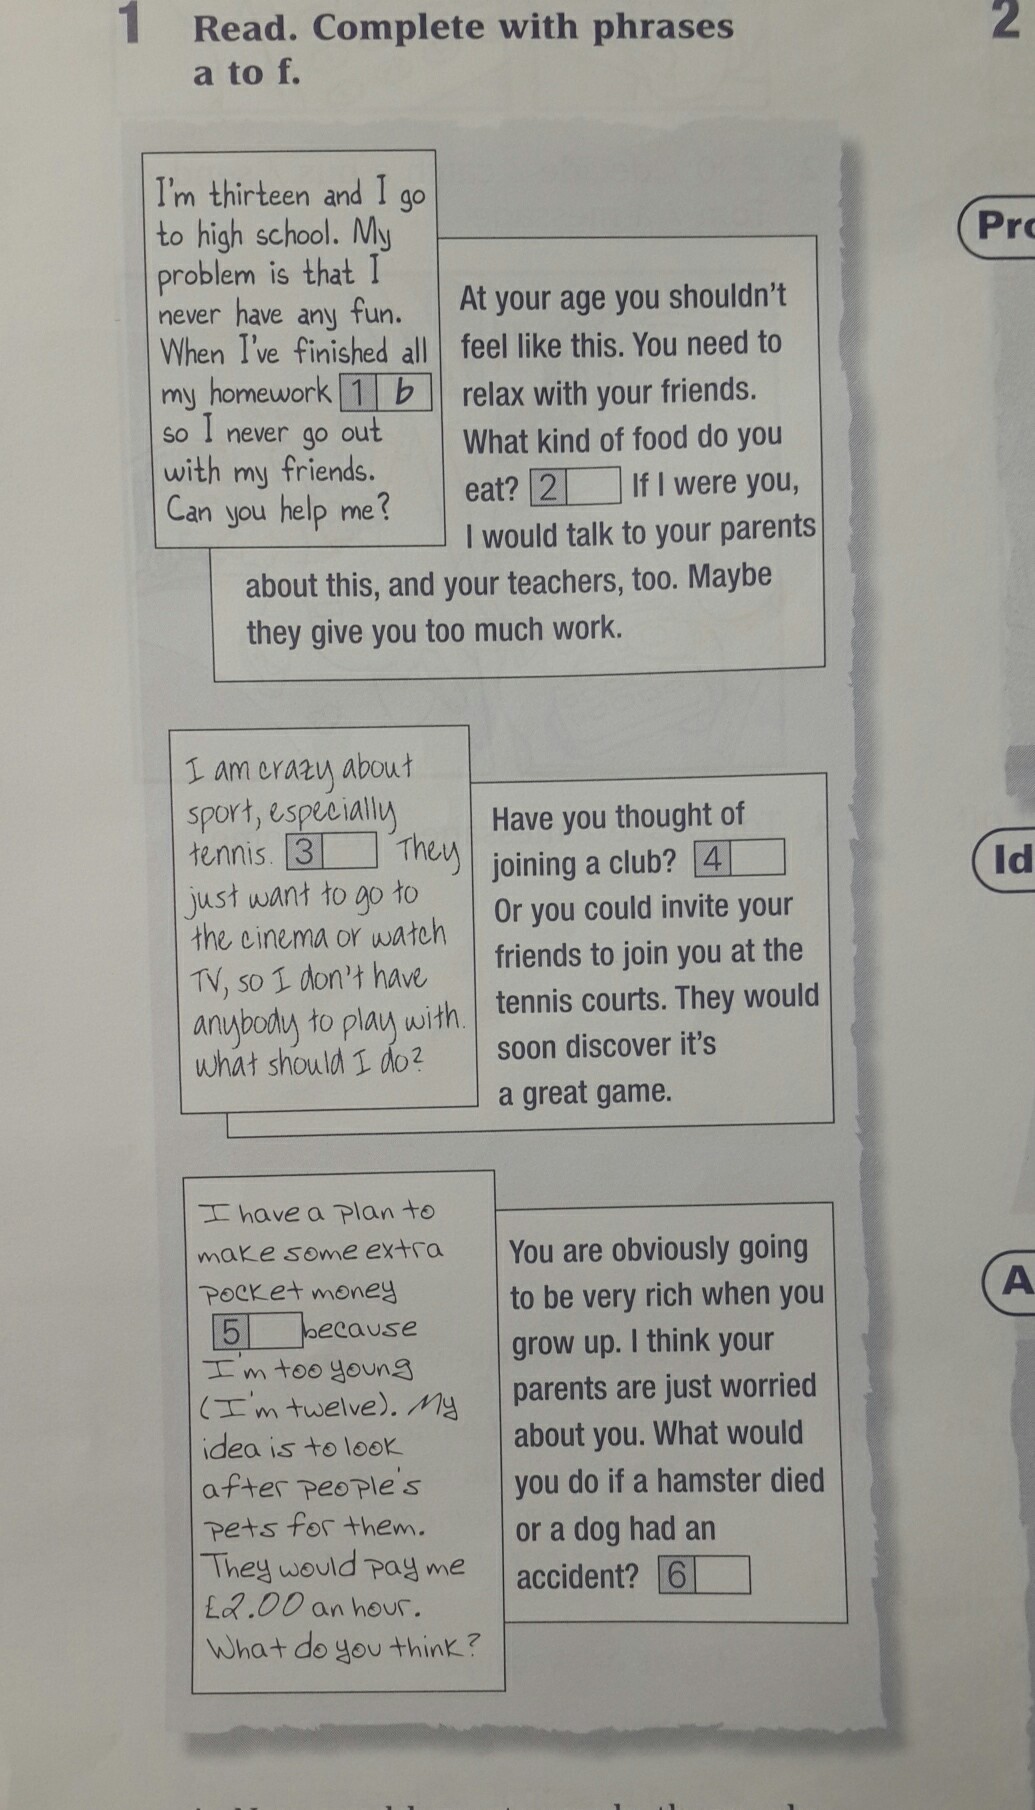 1 Read. Complete with phrases
a to f.
2
I'm thirteen and I go
to high school. My
problem is that I
never have any fun.
When I've finished all
my homework 1 b
so I never go out
with my friends.
Can you help me?
At your age you shouldn't
feel like this. You need to
relax with your friends.
What kind of food do you
eat? 2 If I were you,
I would talk to your parents
about this, and your teachers, too. Maybe
they give you too much work.
I am crazy about
sport, especially
tennis. 3 They
just want to go to
the cinema or watch
TV, so I don't have
anybody to play with.
What should I do?
Have you thought of
joining a club? 4
Or you could invite your
friends to join you at the
tennis courts. They would
soon discover it's
a great game.
I have a plan to
make some extra
pocket money
5 because
I'm too young
(I'm twelve). My
idea is to look
after people's
pets for them.
They would pay me
£2.00 an hour.
What do you think?
You are obviously going
to be very rich when you
grow up. I think your
parents are just worried
about you. What would
you do if a hamster died
or a dog had an
accident? 6